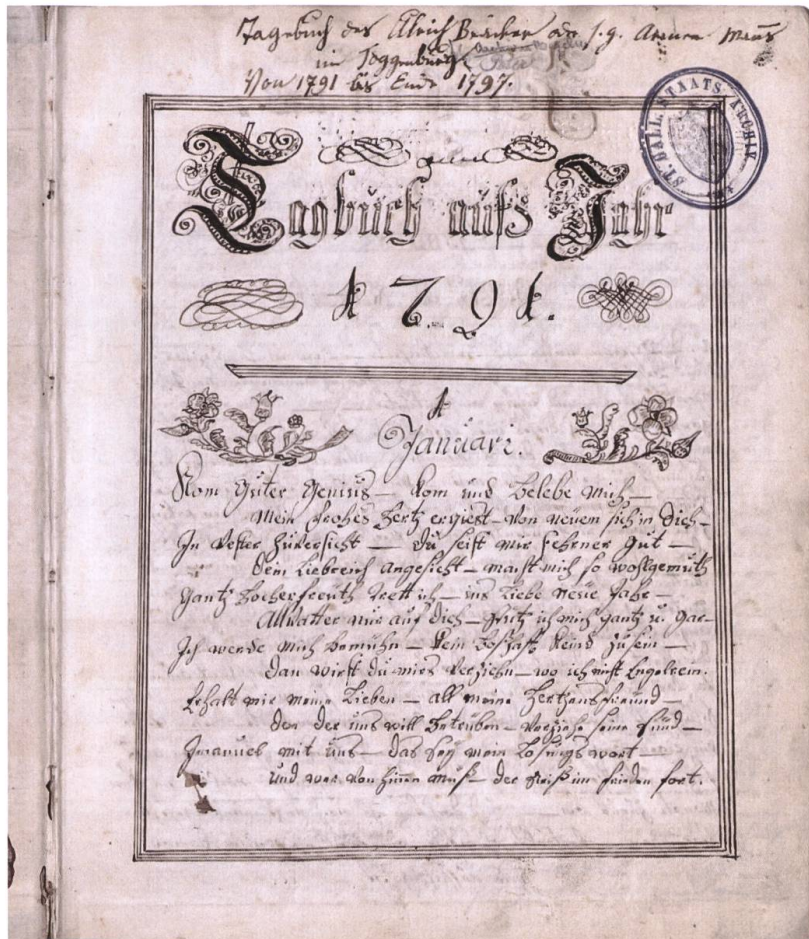 Tagebuch des Ulrich Bräcker od. s. g. Armen Mañs
im Toggenburg
Von 1791 bis Ende 1797.
ST. GALL. STAATS-ARCHIV
Tagbuch aufs Jahr
1791.
1
Januari.
Kom guter Genius – kom und belebe mich –
Mein frohes Hertz ergiest – von neuem sich in dich –
In vester Zuversicht – du seist mir fehrner gut –
dein liebreich angesicht – macht mich so wohlgemuth
Gantz hocherfreuth trett ich – ins liebe neüe Jahr –
Allvatter nur auf dich – stütz ich mich gantz u. gar –
Ich werde mich bemühn – kein boßhafft kind zusein –
dan wirst du mirs verziehn – wo ich nicht Engelrein.
Erhalt mir meine Lieben – all meine Hertzensfreünd –
den der uns will betrüben – verziehe seine sünd –
Imanuel mit üns – das seÿ mein Losungswort –
und wer von hinen muß – der reiß im frieden fort.